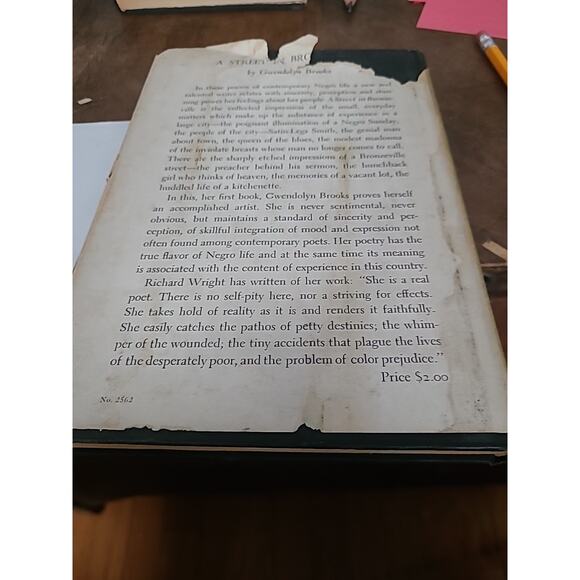 A STREET IN BRO
by Gwendolyn Brooks
In these poems of contemporary Negro life a new and
talented writer relates with sincerity, perception and
ning power her feelings about her people. A Street in Bronze-
ville is the collected impression of the small, everyday
matters which make up the substance of experience in a
large city—the poignant illumination of a Negro Sunday,
the people of the city—Satin-Legs Smith, the genial man
about town, the queen of the blues, the modest madonna
of the inviolate breasts whose man no longer comes to call.
There are the sharply etched impressions of a Bronzeville
street—the preacher behind his sermon, the hunchback
girl who thinks of heaven, the memories of a vacant lot, the
huddled life of a kitchenette.
In this, her first book, Gwendolyn Brooks proves herself
an accomplished artist. She is never sentimental, never
obvious, but maintains a standard of sincerity and per-
ception, of skillful integration of mood and expression not
often found among contemporary poets. Her poetry has the
true flavor of Negro life and at the same time its meaning
is associated with the content of experience in this country.
Richard Wright has written of her work: "She is a real
poet. There is no self-pity here, nor a striving for effects.
She takes hold of reality as it is and renders it faithfully.
She easily catches the pathos of petty destinies; the whim-
per of the wounded; the tiny accidents that plague the lives
of the desperately poor, and the problem of color prejudice."
Price $2.00
No. 2562